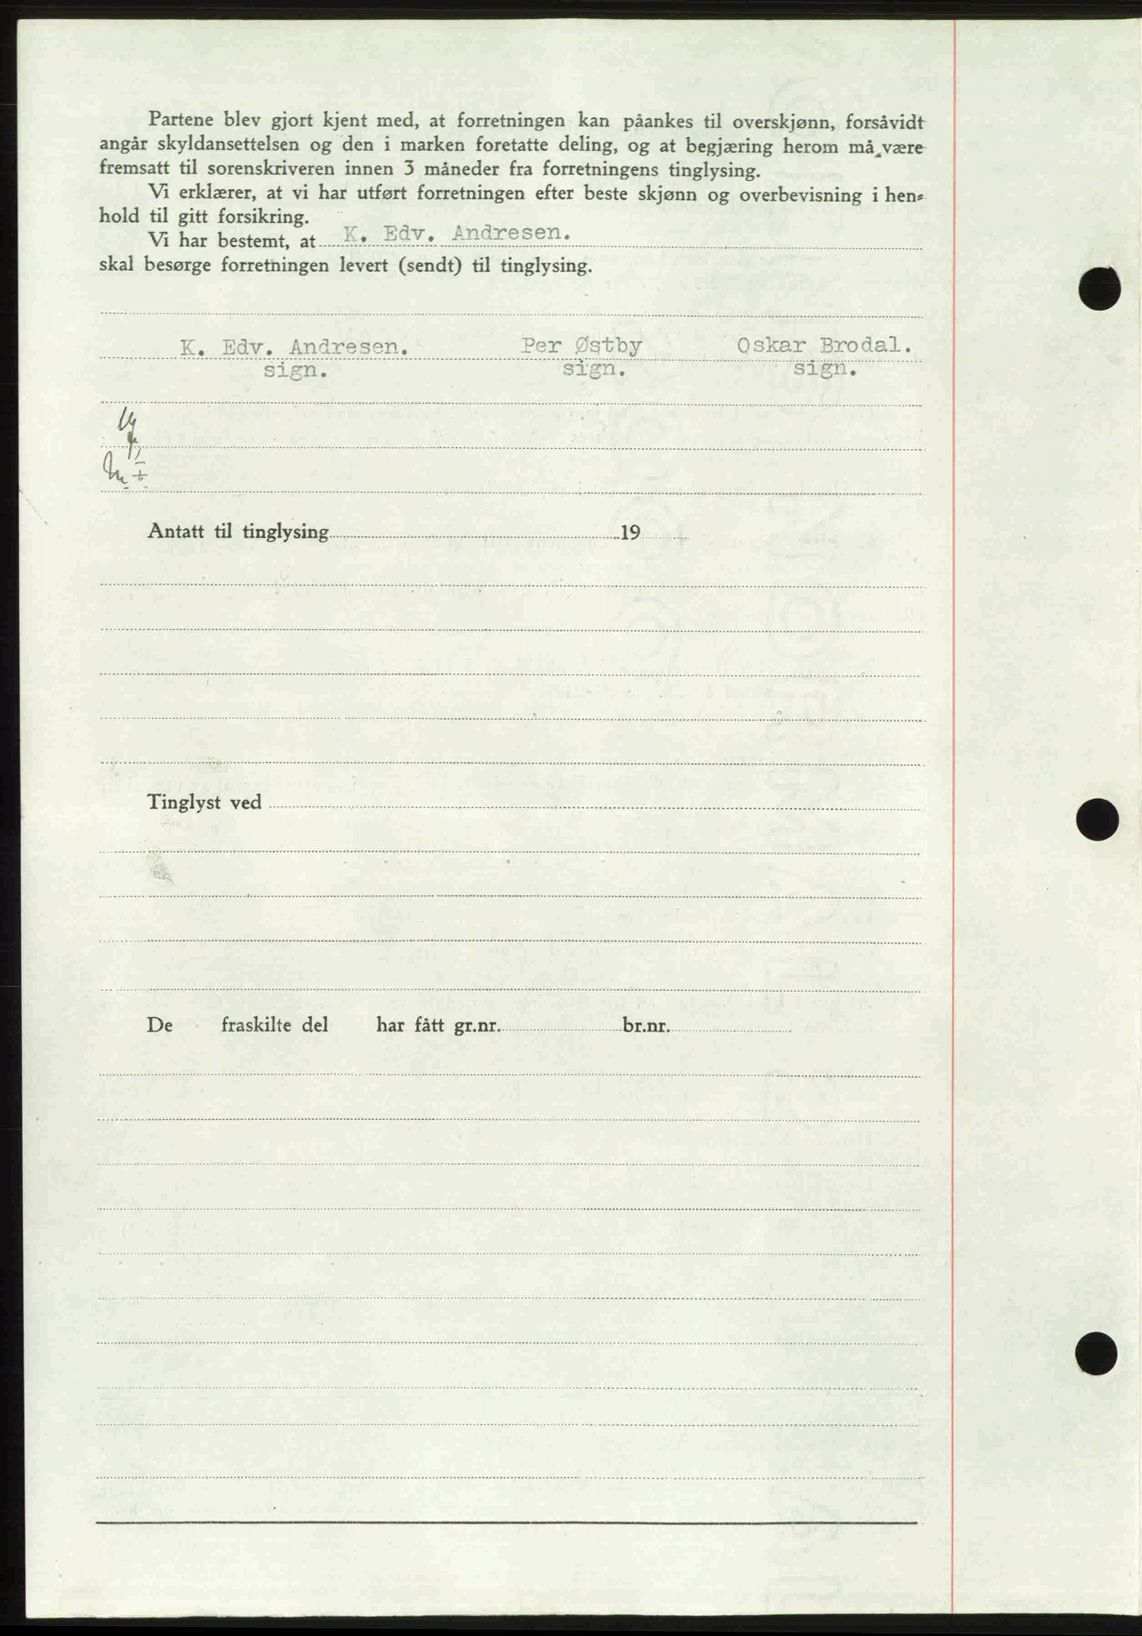 Partene blev gjort kjent med, at forretningen kan påankes til overskjønn, forsåvidt
angår skyldansettelsen og den i marken foretatte deling, og at begjæring herom må være
fremsatt til sorenskriveren innen 3 måneder fra forretningens tinglysing.
Vi erklærer, at vi har utført forretningen efter beste skjønn og overbevisning i hen-
hold til gitt forsikring.
Vi har bestemt, at K. Edv. Andresen.
skal besørge forretningen levert (sendt) til tinglysing.
K. Edv. Andresen. Per Østby Oskar Brodal.
sign. sign. sign.
Antatt til tinglysing 19
Tinglyst ved
De fraskilte del har fått gr.nr. br.nr.